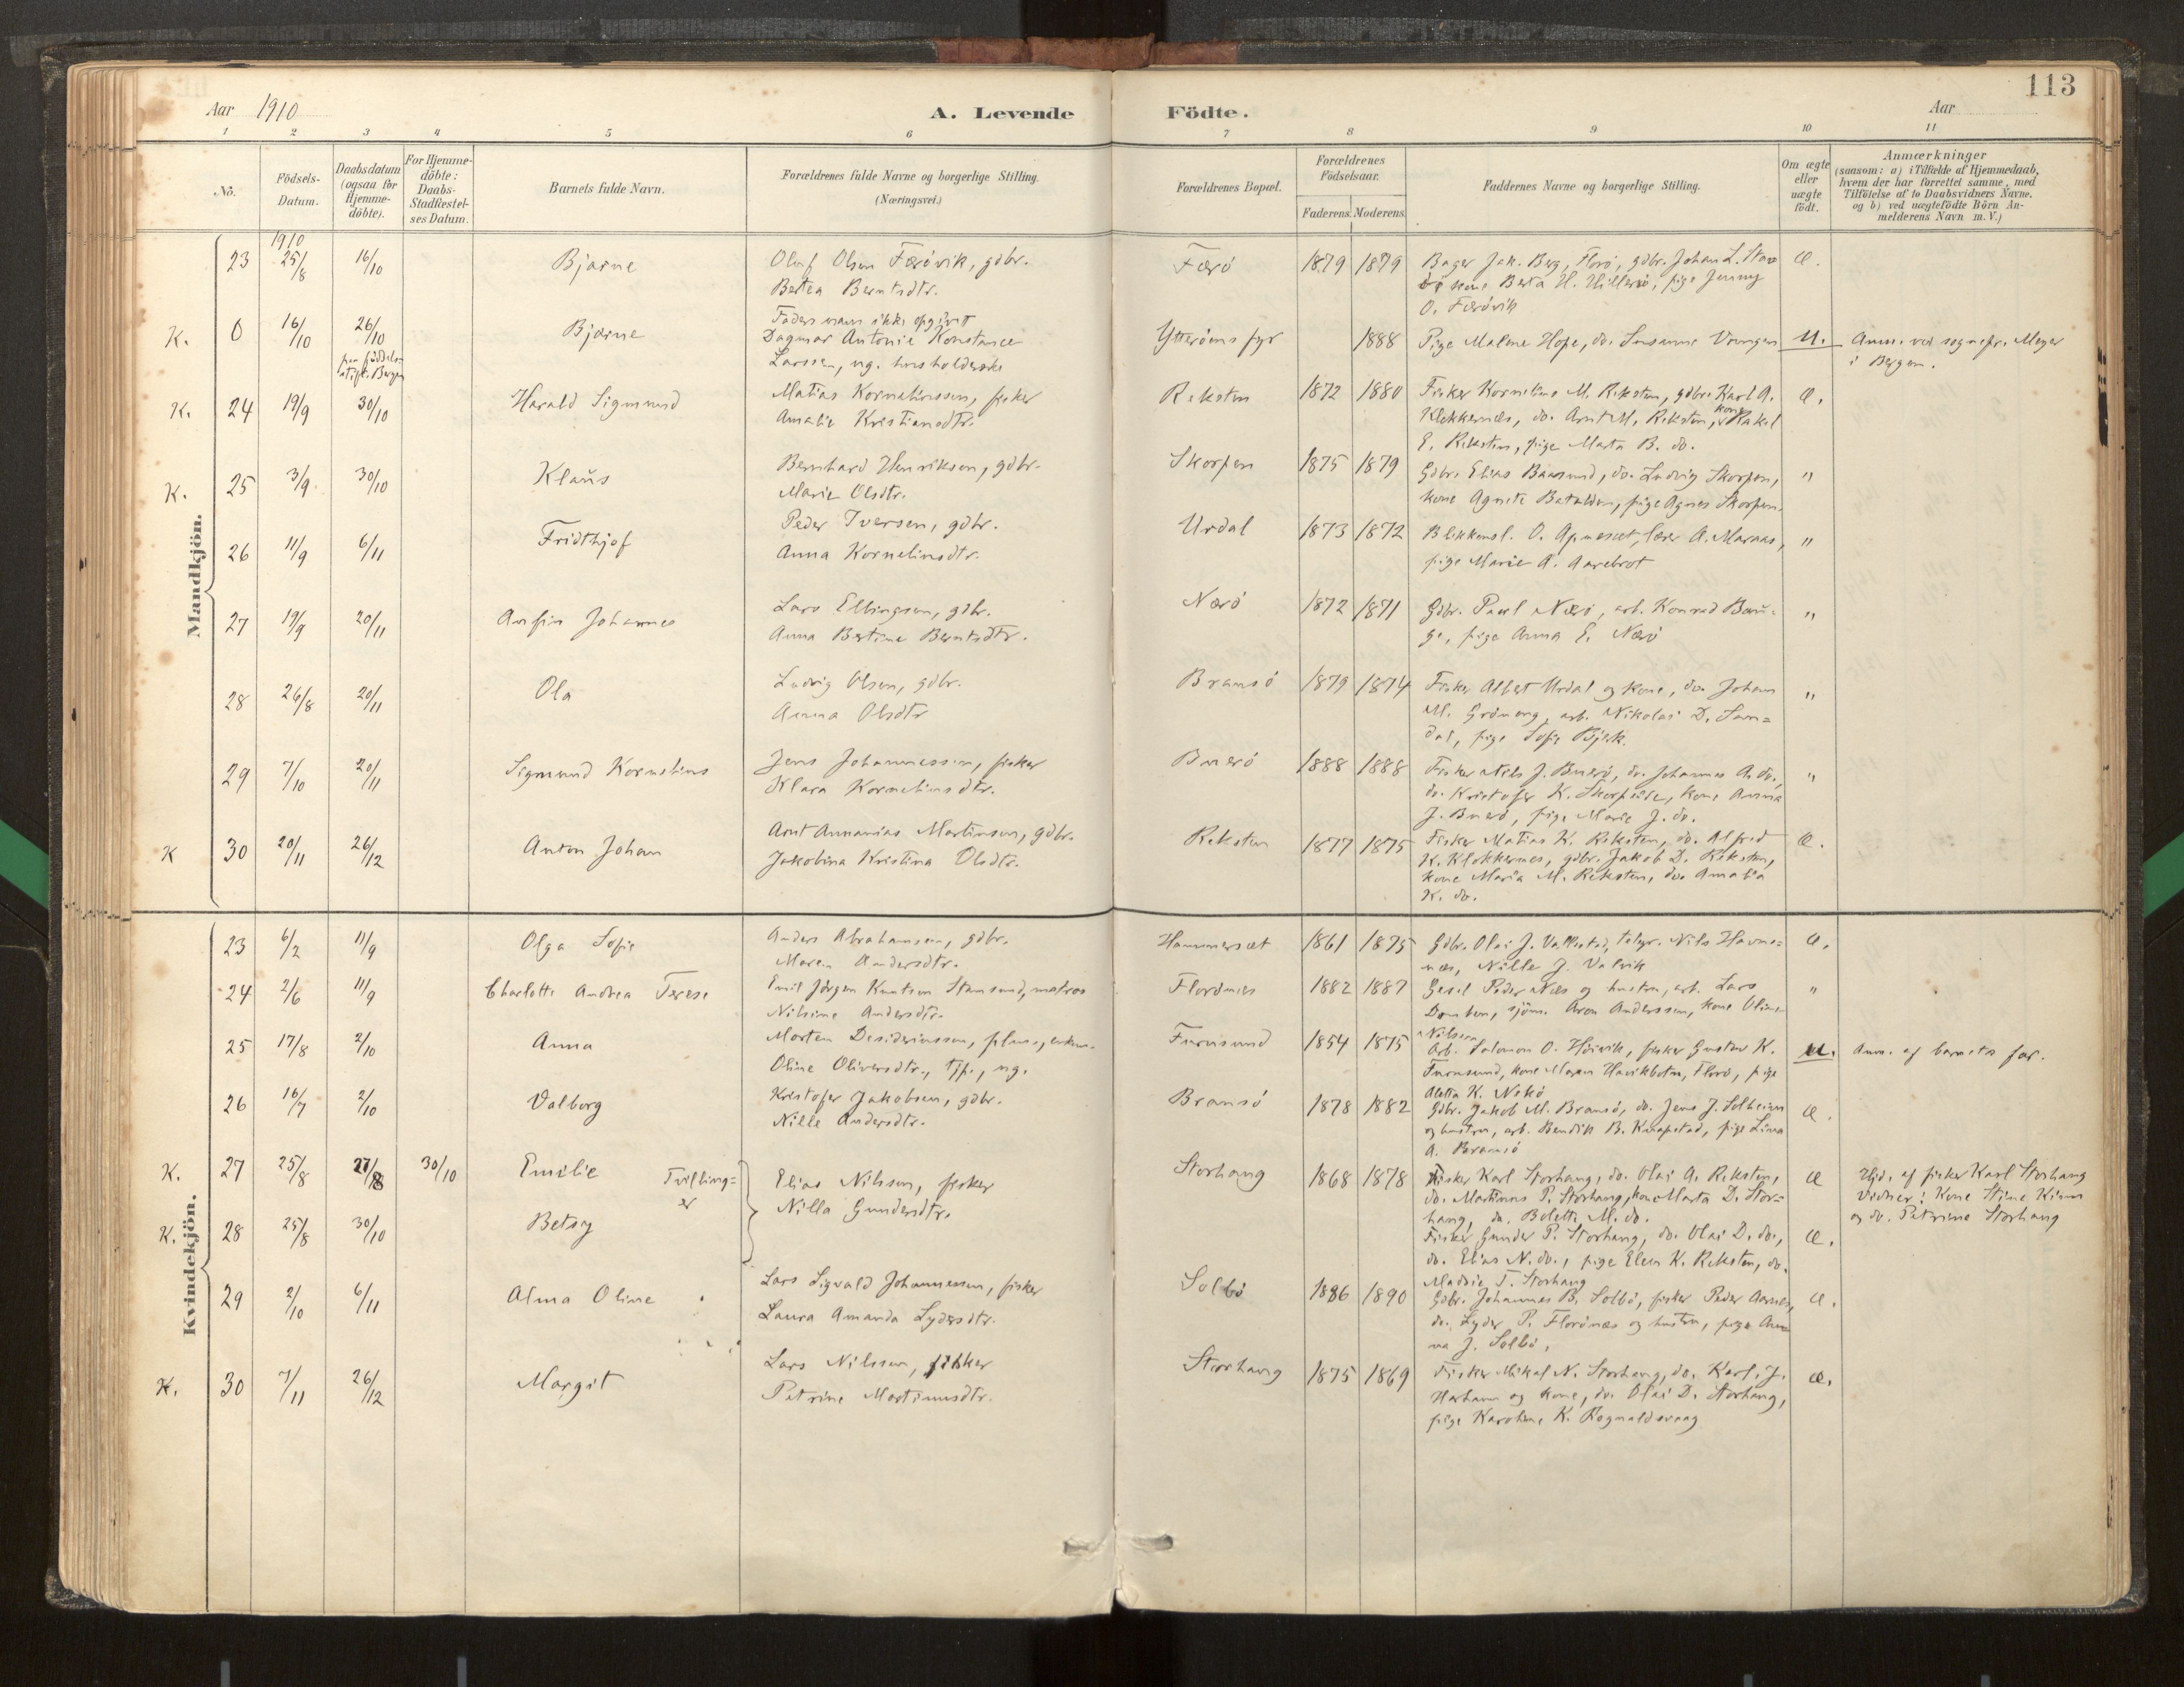 113
Aar 1910
A. Levende Födte.
Aar
1 2 3 4 5 6 7 8 9 10 11
No.
Födsels-
Datum.
Daabsdatum
(ogsaa for
Hjemme-
döbte).
For Hjemme-
döbte:
Daabs-
Stadfæstel-
ses Datum.
Barnets fulde Navn.
Forældrenes fulde Navne og borgerlige Stilling.
(Næringsvei.)
Forældrenes Bopæl.
Forældrenes
Födselsaar.
Faderens. Moderens.
Faddernes Navne og borgerlige Stilling.
Om ægte
eller
uægte
födt.
Anmærkninger
(saasom: a) i Tilfælde af Hjemmedaab,
hvem der har forrettet samme, med
Tilföielse af to Daabsvidners Navne.
og b) ved uægtefödte Börn An-
melderens Navn m. V.)
Mandkjön.
1910
23 25/8 16/10 Bjarne
Olaf Olsen Færövik, gdbr.
Bertea Berntsdtr.
Færö 1879 1879
Bager Jak. Berg, Florö, gdbr. Johan L.
kone Berta H. Hillersö, pige Jenny
O. Færövik
Æ.
K. 0 16/10 26/10
paa födsels-
stift. Bergen
Bjarne
Faders navn ikke opgivet
Dagmar Antonie Konstance
Larssen, ug. husholderske
Ytteröens fyr 1888
Pige Malene Hope, do. Susanne Vrengen
U.
Anm. ved sognepr. Meyer
i Bergen.
K. 24 19/9 30/10 Harald Sigmund
Matias Korneliussen, fisker
Amalie Kristiansdtr.
Reksten 1872 1880
Fisker Kornelius M. Reksten, gdbr. Karl A.
Klokkernæs, do. Arnt M. Reksten, kone Rakel
E. Reksten, pige Marta B. do.
Æ.
K. 25 3/9 30/10 Klaus
Bernhard Henriksen, gdbr.
Marie Olsdtr.
Skorpen 1875 1879
Gdbr. Elias Baasund, do. Ludvig Skorpen,
kone Agnete Batalden, pige Agnes Skorpen.
"
26 11/9 6/11 Fridthjof
Peder Iversen, gdbr.
Anna Korneliusdtr.
Urdal 1873 1872
Blikkensl. O. Apneset, lærer A. Maraas,
pige Marie A. Aarebrot
"
27 19/9 20/11 Anfin Johannes
Lars Ellingsen, gdbr.
Anna Bertine Berntsdtr.
Nærö 1872 1871
Gdbr. Paul Nærö, arb. Konrad Bau-
ge, pige Anna E. Nærö
"
28 26/8 20/11 Ola
Ludvig Olsen, gdbr.
Anna Olsdtr
Bramsö 1879 1874
Fisker Albert Urdal og kone, do. Johan
M. Gröneng, arb. Nikolai D. San=
dal, pige Sofie Bjerk.
"
29 7/10 20/11 Sigmund Kornelius
Jens Johannessen, fisker
Klara Korneliusdtr.
Buerö 1888 1888
Fisker Nils J. Buerö, do. Johannes A. do.,
do. Kristofer K. Skorpeide, kone Anna
J. Buerö, pige Marie J. do.
"
K 30 20/11 26/12 Anton Johan
Arnt Annanias Martinsen, gdbr.
Jakobina Kristina Olsdtr.
Reksten 1877 1875
Fisker Matias K. Reksten, do. Alfred
K. Klokkernes, gdbr. Jakob D. Reksten,
kone Maria M. Reksten, do. Amalia
K. do.
Æ.
Kvindekjön.
23 6/2 11/9 Olga Sofie
Anders Abrahamsen, gdbr.
Maren Andersdtr.
Hammersæt 1861 1875
Gdbr. Olai J. Vallestad, telegr. Nils Havne=
næs, Nille J. Valvik
Æ.
24 2/6 11/9 Charlotte Andrea Terese
Emil Jörgen Knutsen Stamsund, matros
Nilsine Andersdtr.
Florönæs 1882 1887
Gesel Peder Næs og hustru, arb. Lars
Domben, sjöm. Aron Anderssen, kone Oline
Nilssen
"
25 17/8 2/10 Anna
Morten Desideriussen, enkem.
Oline Oliversdtr., tjp., ug.
Furusund 1854 1875
Arb. Salomon O. Höivik, fisker Gustav K.
Furusund, kone Maren Havikbotn, Florö, pige
Aletta K. Nekö
U.
Anm. af barnets far.
26 16/7 2/10 Valborg
Kristofer Jakobsen, gdbr.
Nille Andersdtr.
Bramsö 1878 1882
Gdbr. Jakob M. Bramsö, do. Jens J. Solheim
og hustru, arb. Bendik B. Knapstad, pige Lina
A. Bramsö
Æ.
K. 27 25/8 27/8 30/10 Emilie
Tvilling=
er
Elias Nilssen, fisker
Nilla Gundersdtr.
Storhang 1868 1878
Fisker Karl Storhang, do. Olai A. Reksten,
do. Martinus P. Storhang, kone Marta D. Stor=
hang, do. Bolette M. do.
Æ
Hjd. af fisker Karl Storhang
Vidner: Kone Stine Kinn
og do. Petrine Storhang
K. 28 25/8 30/10 Betsy
Fisker Gunder P. Storhang, do. Olai D. do.,
do. Elias N. do., pige Elen K. Reksten, do.
Madsie T. Storhang
Æ.
29 2/10 6/11 Alma Oline
Lars Sigvald Johannessen, fisker
Laura Amanda Lydersdtr.
Solbö 1886 1890
Gdbr. Johannes B. Solbö, fisker Peder Aarnes,
do. Lyder P. Florönæs og hustru, pige An=
na J. Solbö.
Æ.
K. 30 7/11 26/12 Margit
Lars Nilssen, fisker
Petrine Martinusdtr.
Storhang 1875 1869
Fisker Mikal N. Storhang, do. Karl J.
Harhamn og kone, do. Olai D. Storhang,
pige Karoline K. Rognaldsvaag
Æ.